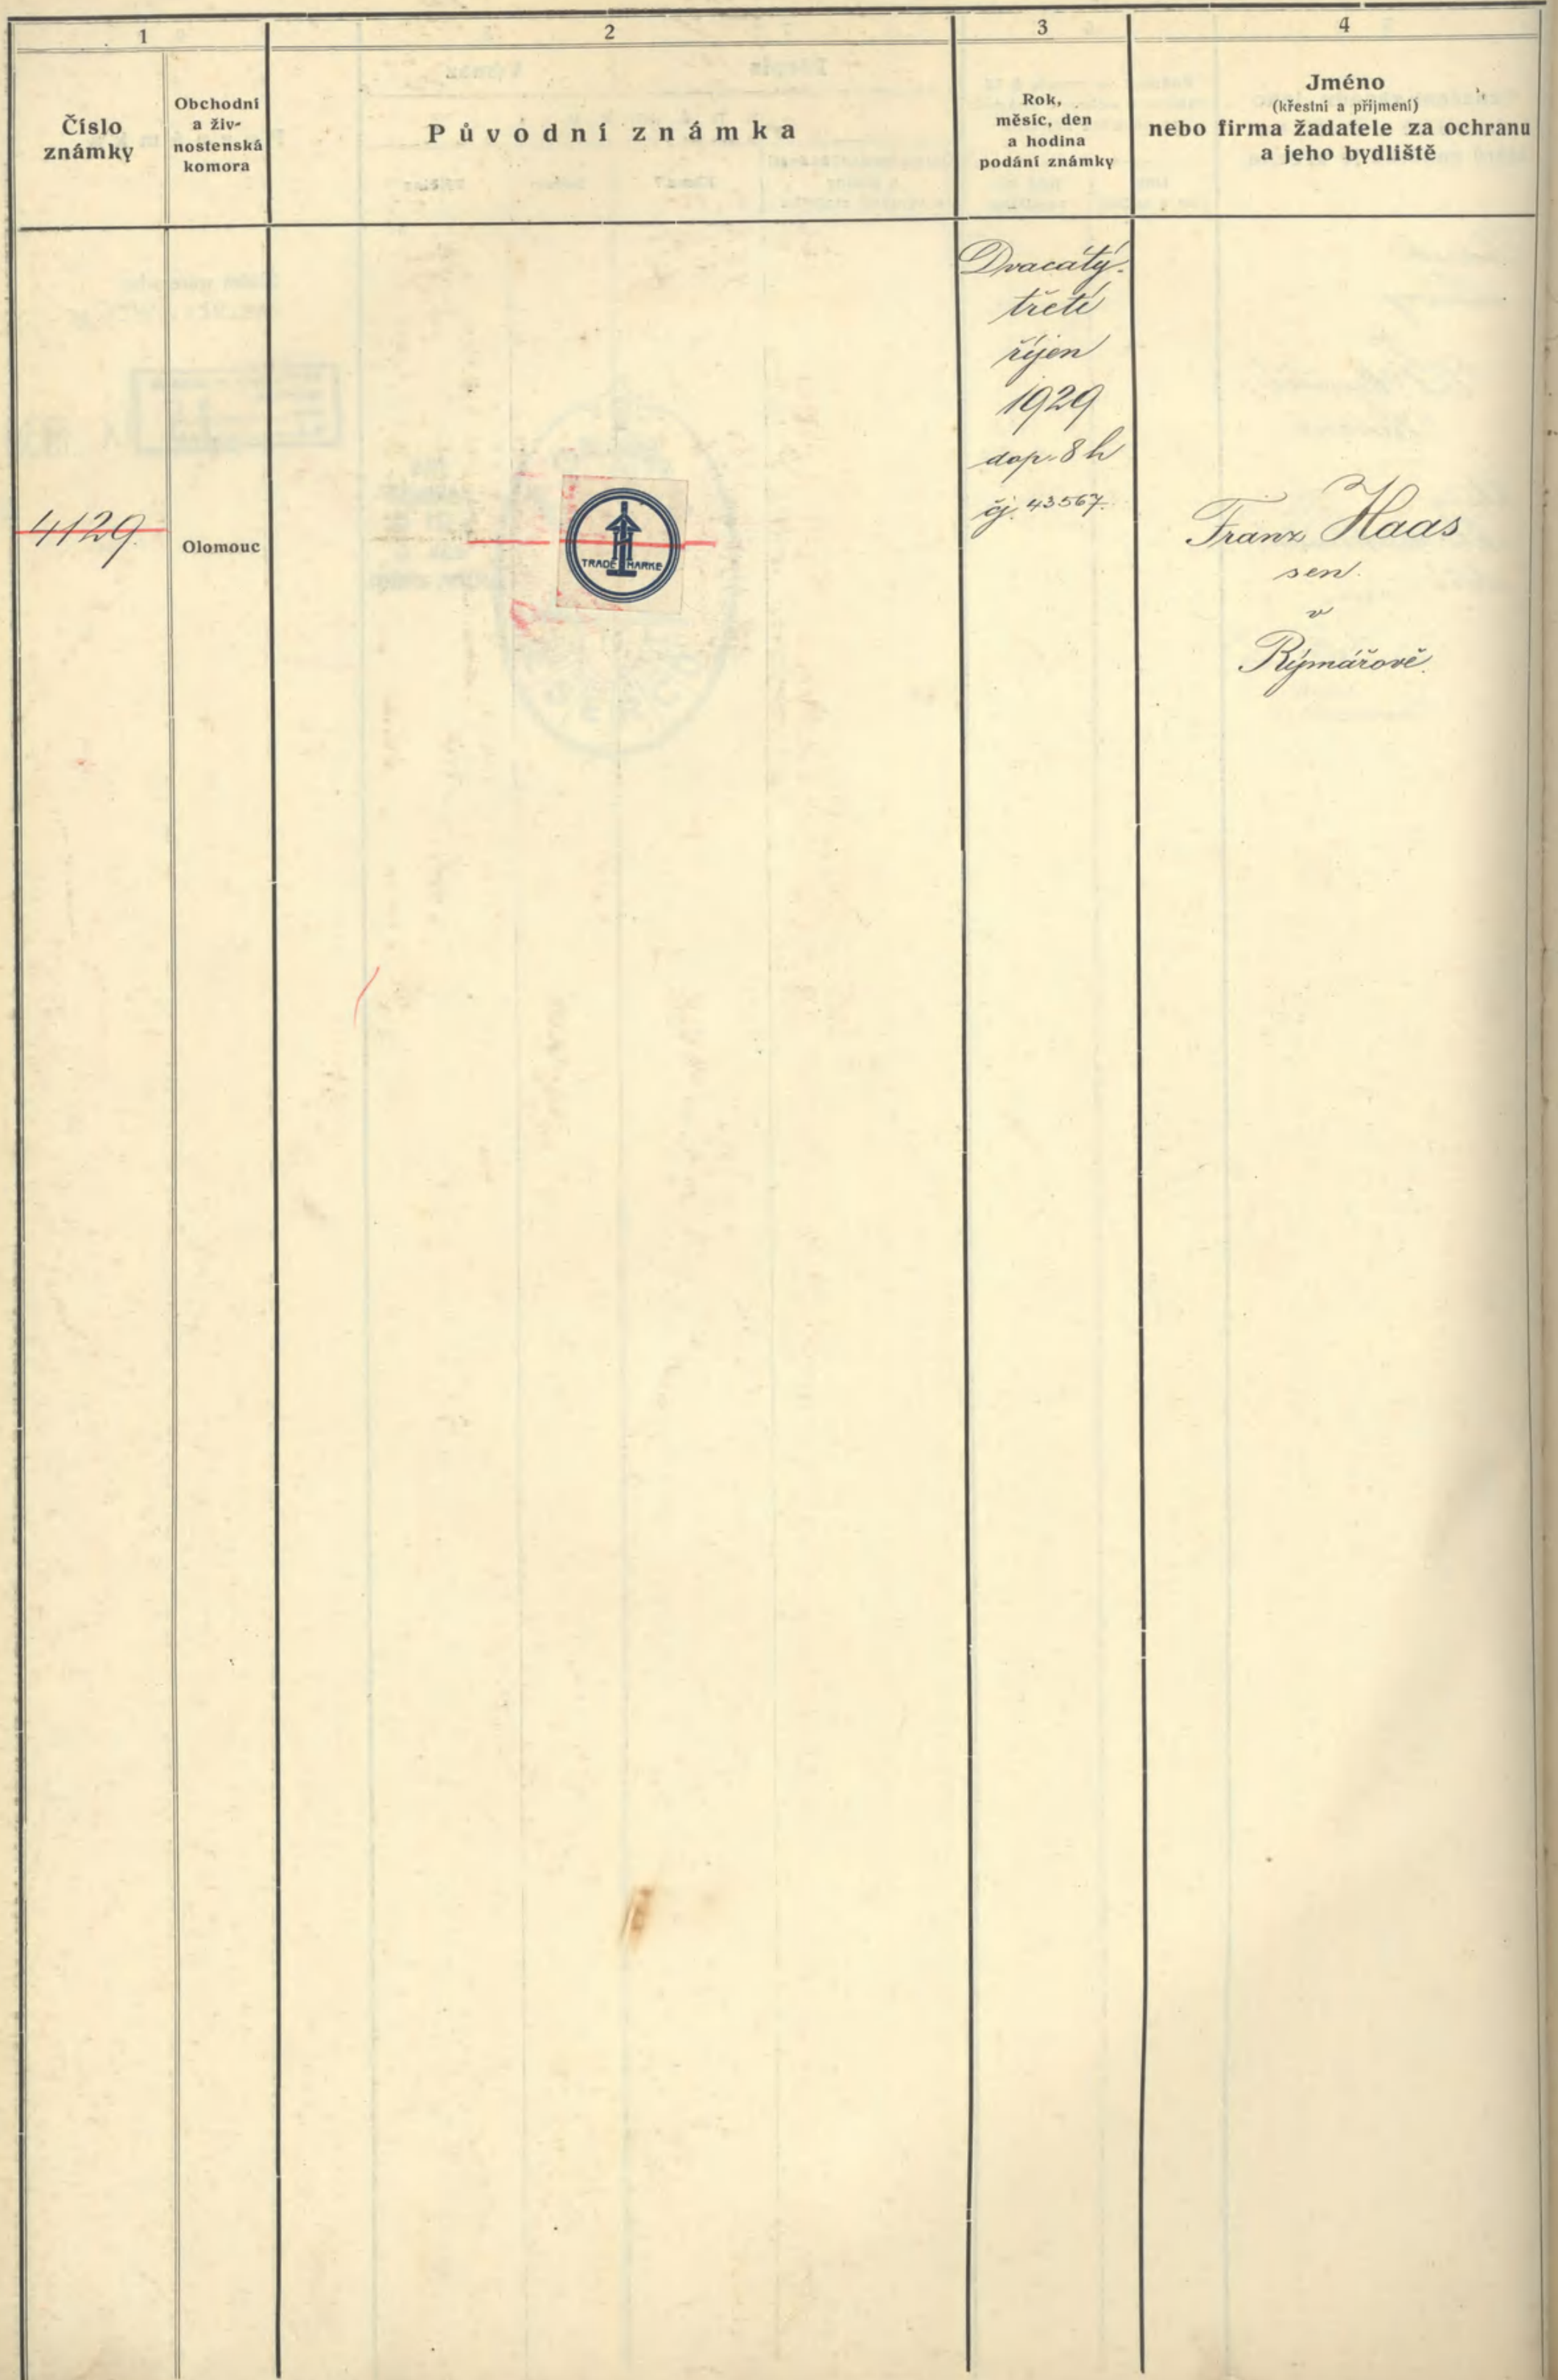 1
2
3
4
Číslo
známky
Obchodní
a živ-
nostenská
komora
Původní známka
Rok,
měsíc, den
a hodina
podání známky
Jméno
(křestní a příjmení)
nebo firma žadatele za ochranu
a jeho bydliště
4129.
Olomouc
TRADE MARKE
Dvacátý
třetí
říjen
1929
dop. 8 h
čj. 43567.
Franz Haas
sen.
v
Rýmářově.